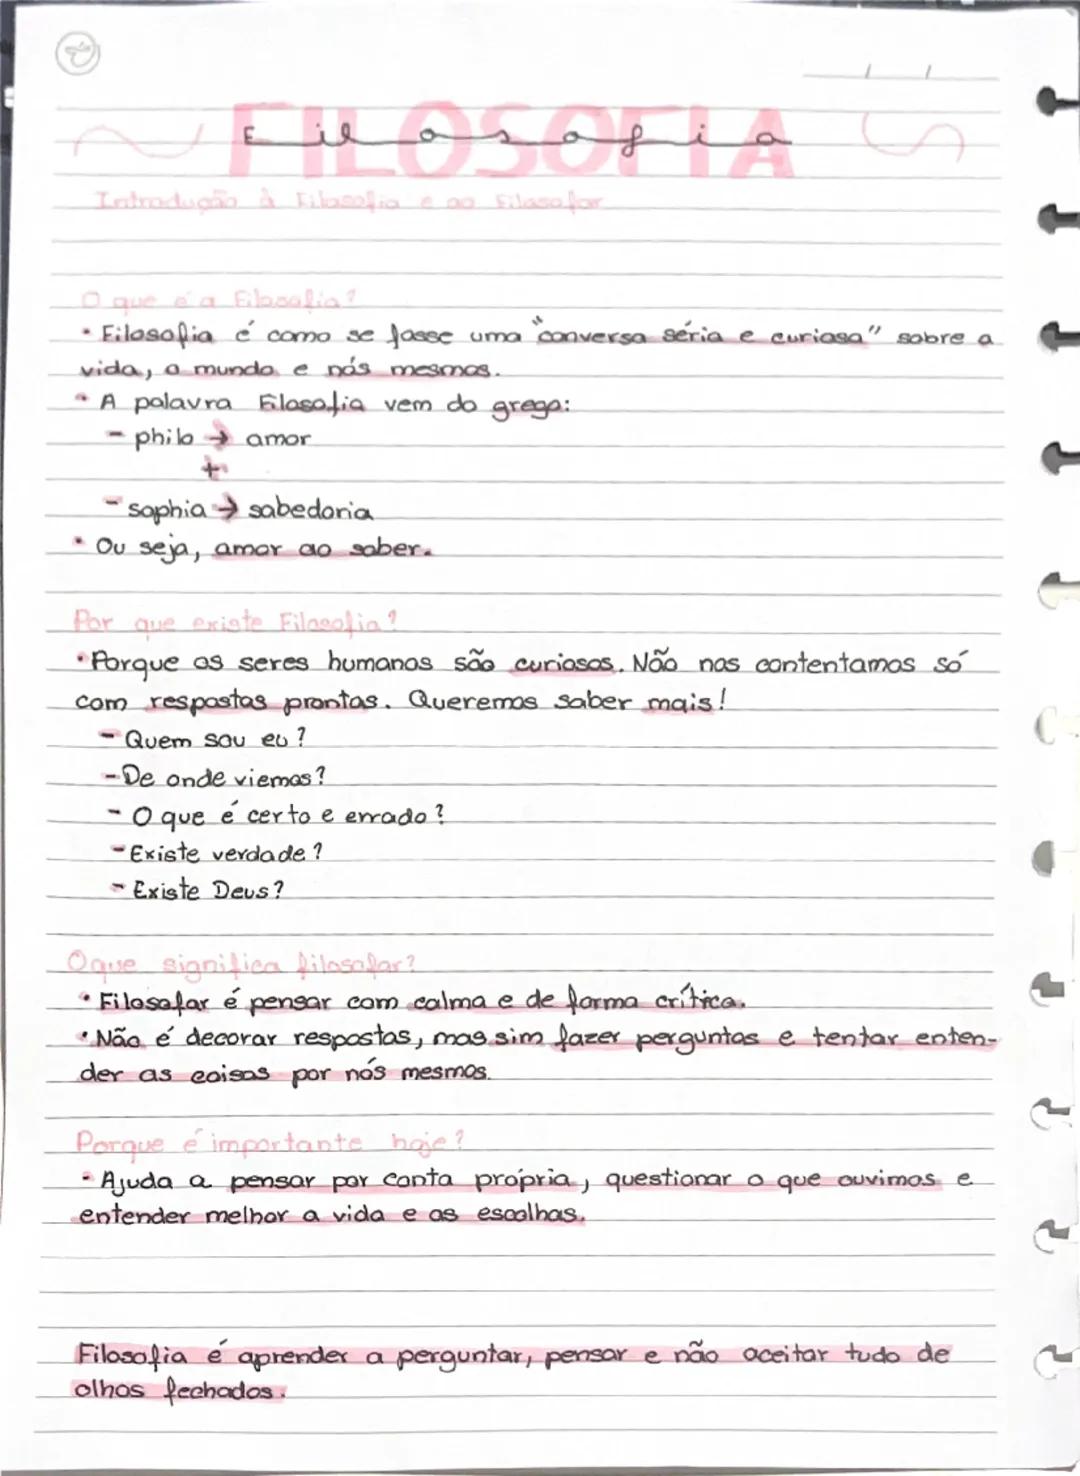 FILOSOFIA
Filosofia
Introdução à Filosofia e ao Filosofar
O que é a Filosofia?
• Filosofia é como se fosse uma "conversa séria e curiosa" sobre a
vida, o mundo e nós mesmos.
• A palavra Filosofia vem do grego:
- philo → amor
+
- sophia → sabedoria
• Ou seja, amor ao saber.
Por que existe Filosofia?
• Porque os seres humanos são curiosos. Não nos contentamos só
com respostas prontas. Queremos saber mais!
- Quem sou eu?
- De onde viemos?
- O que é certo e errado?
- Existe verdade?
- Existe Deus?
O que significa filosofar?
• Filosofar é pensar com calma e de forma crítica.
• Não é decorar respostas, mas sim fazer perguntas e tentar enten-
der as coisas por nós mesmos.
Porque é importante hoje?
• Ajuda a pensar por conta própria, questionar o que ouvimos e
entender melhor a vida e as escolhas.
Filosofia é aprender a perguntar, pensar e não aceitar tudo de
olhos fechados.